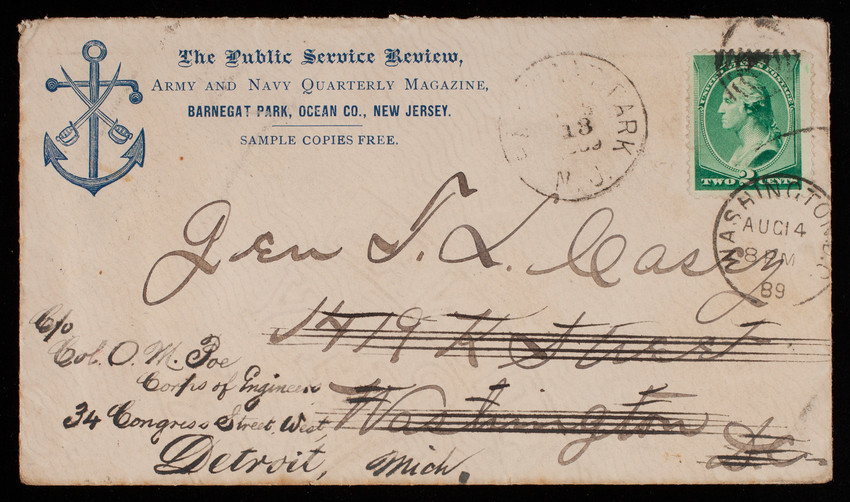 The Public Service Review,
Army and Navy Quarterly Magazine,
BARNEGAT PARK, OCEAN CO., NEW JERSEY.
SAMPLE COPIES FREE.
PARK
13
N.J.
UNITED STATES POSTAGE
TWO 2 CENTS
WASHINGTON, D.C.
AUG 14
8 PM
89
Gen T. L. Casey
1419 K Street
Washington
D.C.
C/o
Col. O. M. Poe
Corps of Engineers
34 Congress Street West,
Detroit, Mich.